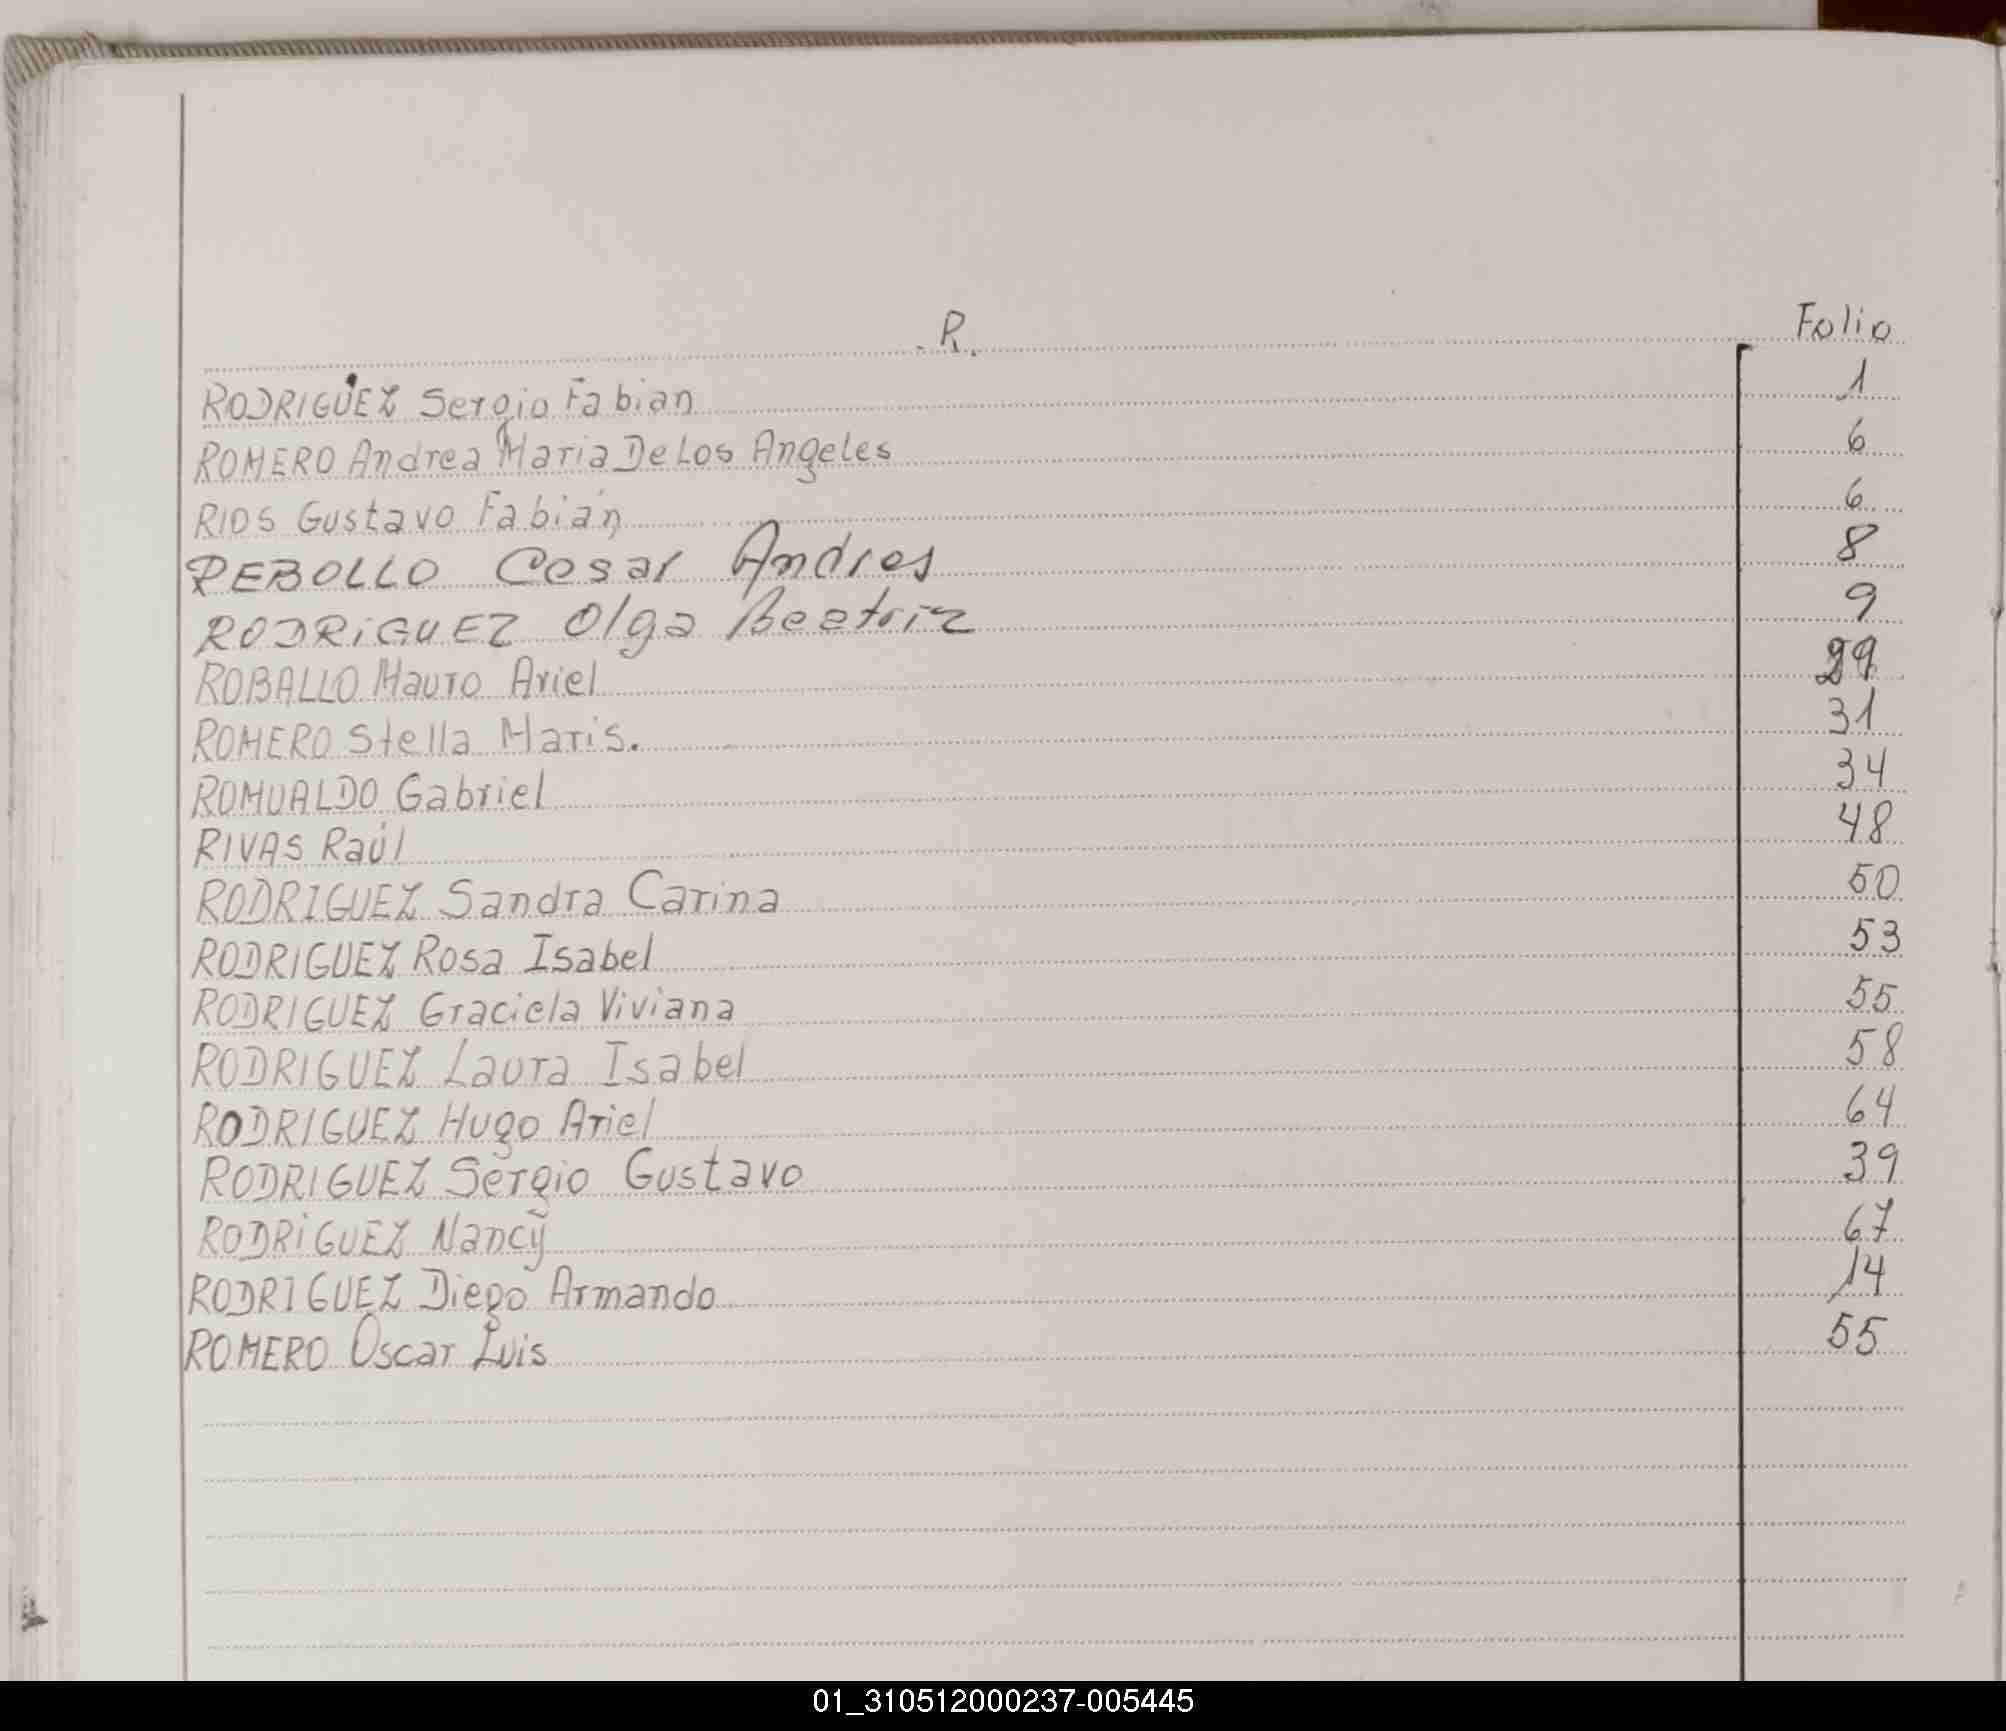 .R. Folio
RODRIGUEZ Sergio Fabian 1
ROMERO Andrea Maria De Los Angeles 6
RIOS Gustavo Fabián 6
REBOLLO Cesar Andres 8
RODRiGUEZ Olga Beatriz 9
ROBALLO Mauro Ariel 29
ROMERO Stella Maris. 31
ROMUALDO Gabriel 34
RIVAS Raúl 48
RODRIGUEZ Sandra Carina 50
RODRIGUEZ Rosa Isabel 53
RODRIGUEZ Graciela Viviana 55
RODRIGUEZ Laura Isabel 58
RODRIGUEZ Hugo Ariel 64
RODRIGUEZ Sergio Gustavo 39
RODRiGUEZ Nancy 67
RODRIGUEZ Diego Armando 14
ROMERO Oscar Luis 55
01_310512000237-005445